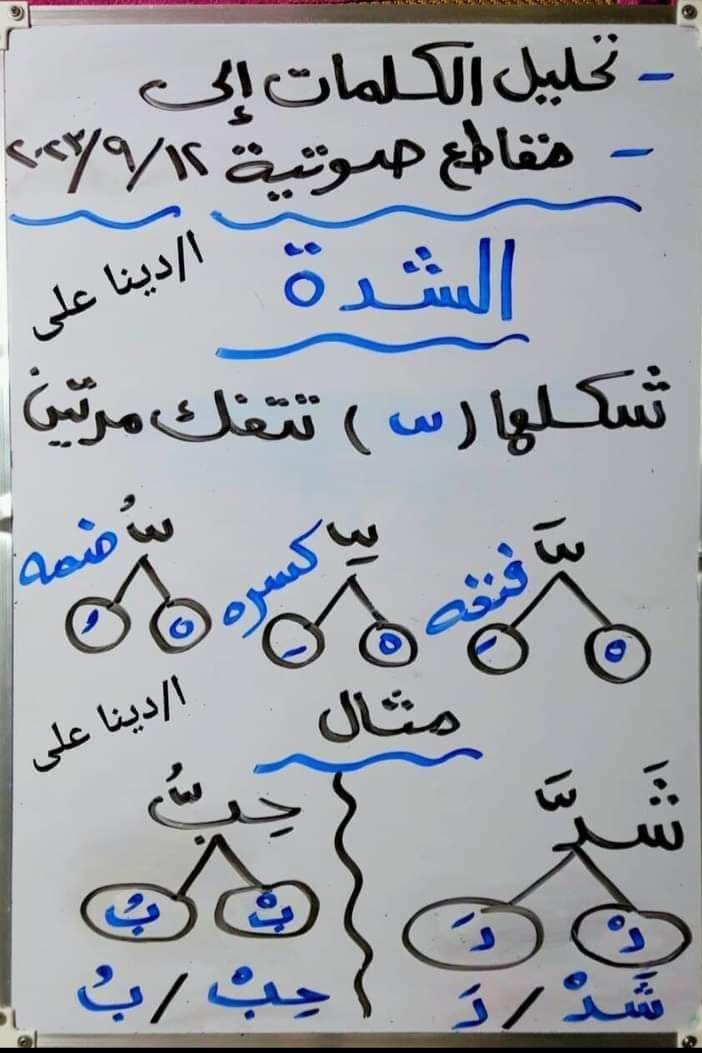 - تحليل الكلمات إلى
- مقاطع صوتية ٢٠٢٣/٩/١٢
ا/دينا على
الشدة
شكلها ( س ) تتفك مرتين
سَّ فتحه سِّ كسره سُّ ضمه
ْ َ ْ ِ ْ ُ
ا/دينا على
مثال
شَدَّ حِبُّ
دْ دَ بْ بُ
شَدْ / دَ حِبْ / بُ